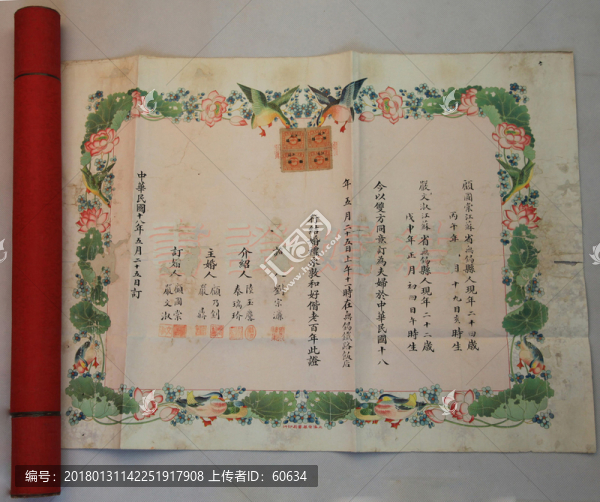 顧爾棠江蘇省無錫縣人現年二十四歲
丙午年　月十九日亥時生
嚴文淑江蘇省無錫縣人現年二十二歲
戊申年正月初四日午時生
今以雙方同意訂為夫婦於中華民國十八
年五月二十五日上午十一時在無錫鐵路飯店
行結婚禮宗敦和好偕老百年此證
人 劉宗濂
介紹人
秦瑞玠
主婚人 顧乃釗
嚴
訂婚人 顧爾棠
嚴文淑
中華民國十八年五月二十五日訂
编号：20180131142251917908 上传者ID：60634